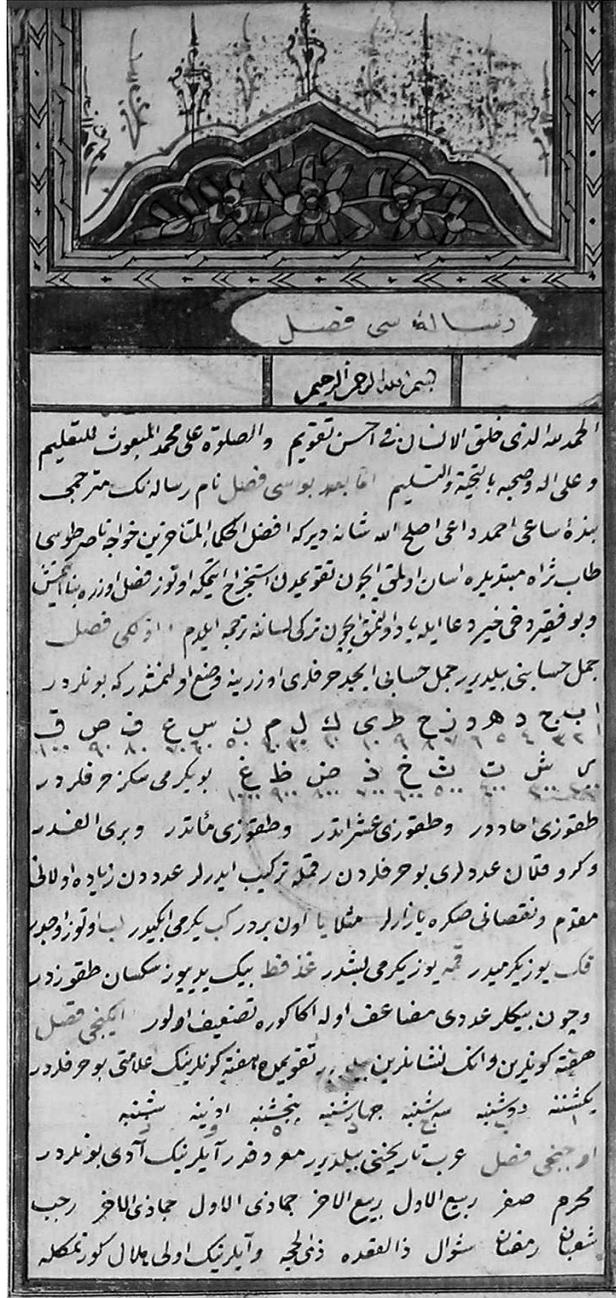 رسالۀ سی فصل
بسم الله الرحمن الرحیم
الحمد لله الذی خلق الانسان فی احسن تقویم والصلوة علی محمد المبعوث للتعلیم
و علی اله وصحبه بالتحیة والتسلیم اما بعد بو سی فصل نام رساله نك مترجمی
بندۀ ساعی احمد داعی اصلح الله شانه دیر که افضل الحکماء المتأخرین خواجه ناصر طوسی
طاب ثراه مبتدیلره اسان اولمق ایچون تقویمدن استخراج ایتمکه اوتوز فصل اوزره بنا ایتمش
و بو فقیر دخی خیر دعا ایله یاد اولنمق ایچون ترکی لساننه ترجمه ایلدم اولکی فصل
جمل حسابنی بیلدیرر جمل حسابی ابجد حرفلری اوزرینه وضع اولنمشدر که بونلردر
ا ب ج د ه و ز ح ط ی ك ل م ن س ع ف ص ق
١ ٢ ٣ ٤ ٥ ٦ ٧ ٨ ٩ ١٠ ٢٠ ٣٠ ٤٠ ٥٠ ٦٠ ٧٠ ٨٠ ٩٠ ١٠٠
ر ش ت ث خ ذ ض ظ غ بو یکرمی سکز حرفلردر
٢٠٠ ٣٠٠ ٤٠٠ ٥٠٠ ٦٠٠ ٧٠٠ ٨٠٠ ٩٠٠ ١٠٠٠
طقوزی احاددر وطقوزی عشراتدر وطقوزی مأتدر وبری الفدر
وکرو قلان عددلری بو حرفلردن رقمله ترکیب ایدرلر عددن زیاده اولانی
مقدم ونقصانی صکره یازارلر مثلا یا اون بردر کب یکرمی ایکیدر لب اوتوز
قك یوز یکرمیدر قکه یوز یکرمی بشدر غذفط بیك یدیوز سکسان طقوزدر
وچون بیکلر عددی مضاعف اوله اکا کوره تصنیف اولور ایکنجی فصل
هفته کونلرین وانك نشانلرین بیلدیرر تقویمده هفته کونلرینك علامتی بو حرفلردر
یکشنبه دوشنبه سه شنبه چهارشنبه پنجشنبه اوزینه شنبه
اوچنجی فصل عرب تاریخنی بیلدیرر معروفدر آیلرینك آدی بونلردر
محرم صفر ربیع الاول ربیع الاخر جماذی الاول جماذی الاخر رجب
شعبان رمضان شوال ذالقعده ذی الحجه وآیلرینك اولی هلال کورنمکله